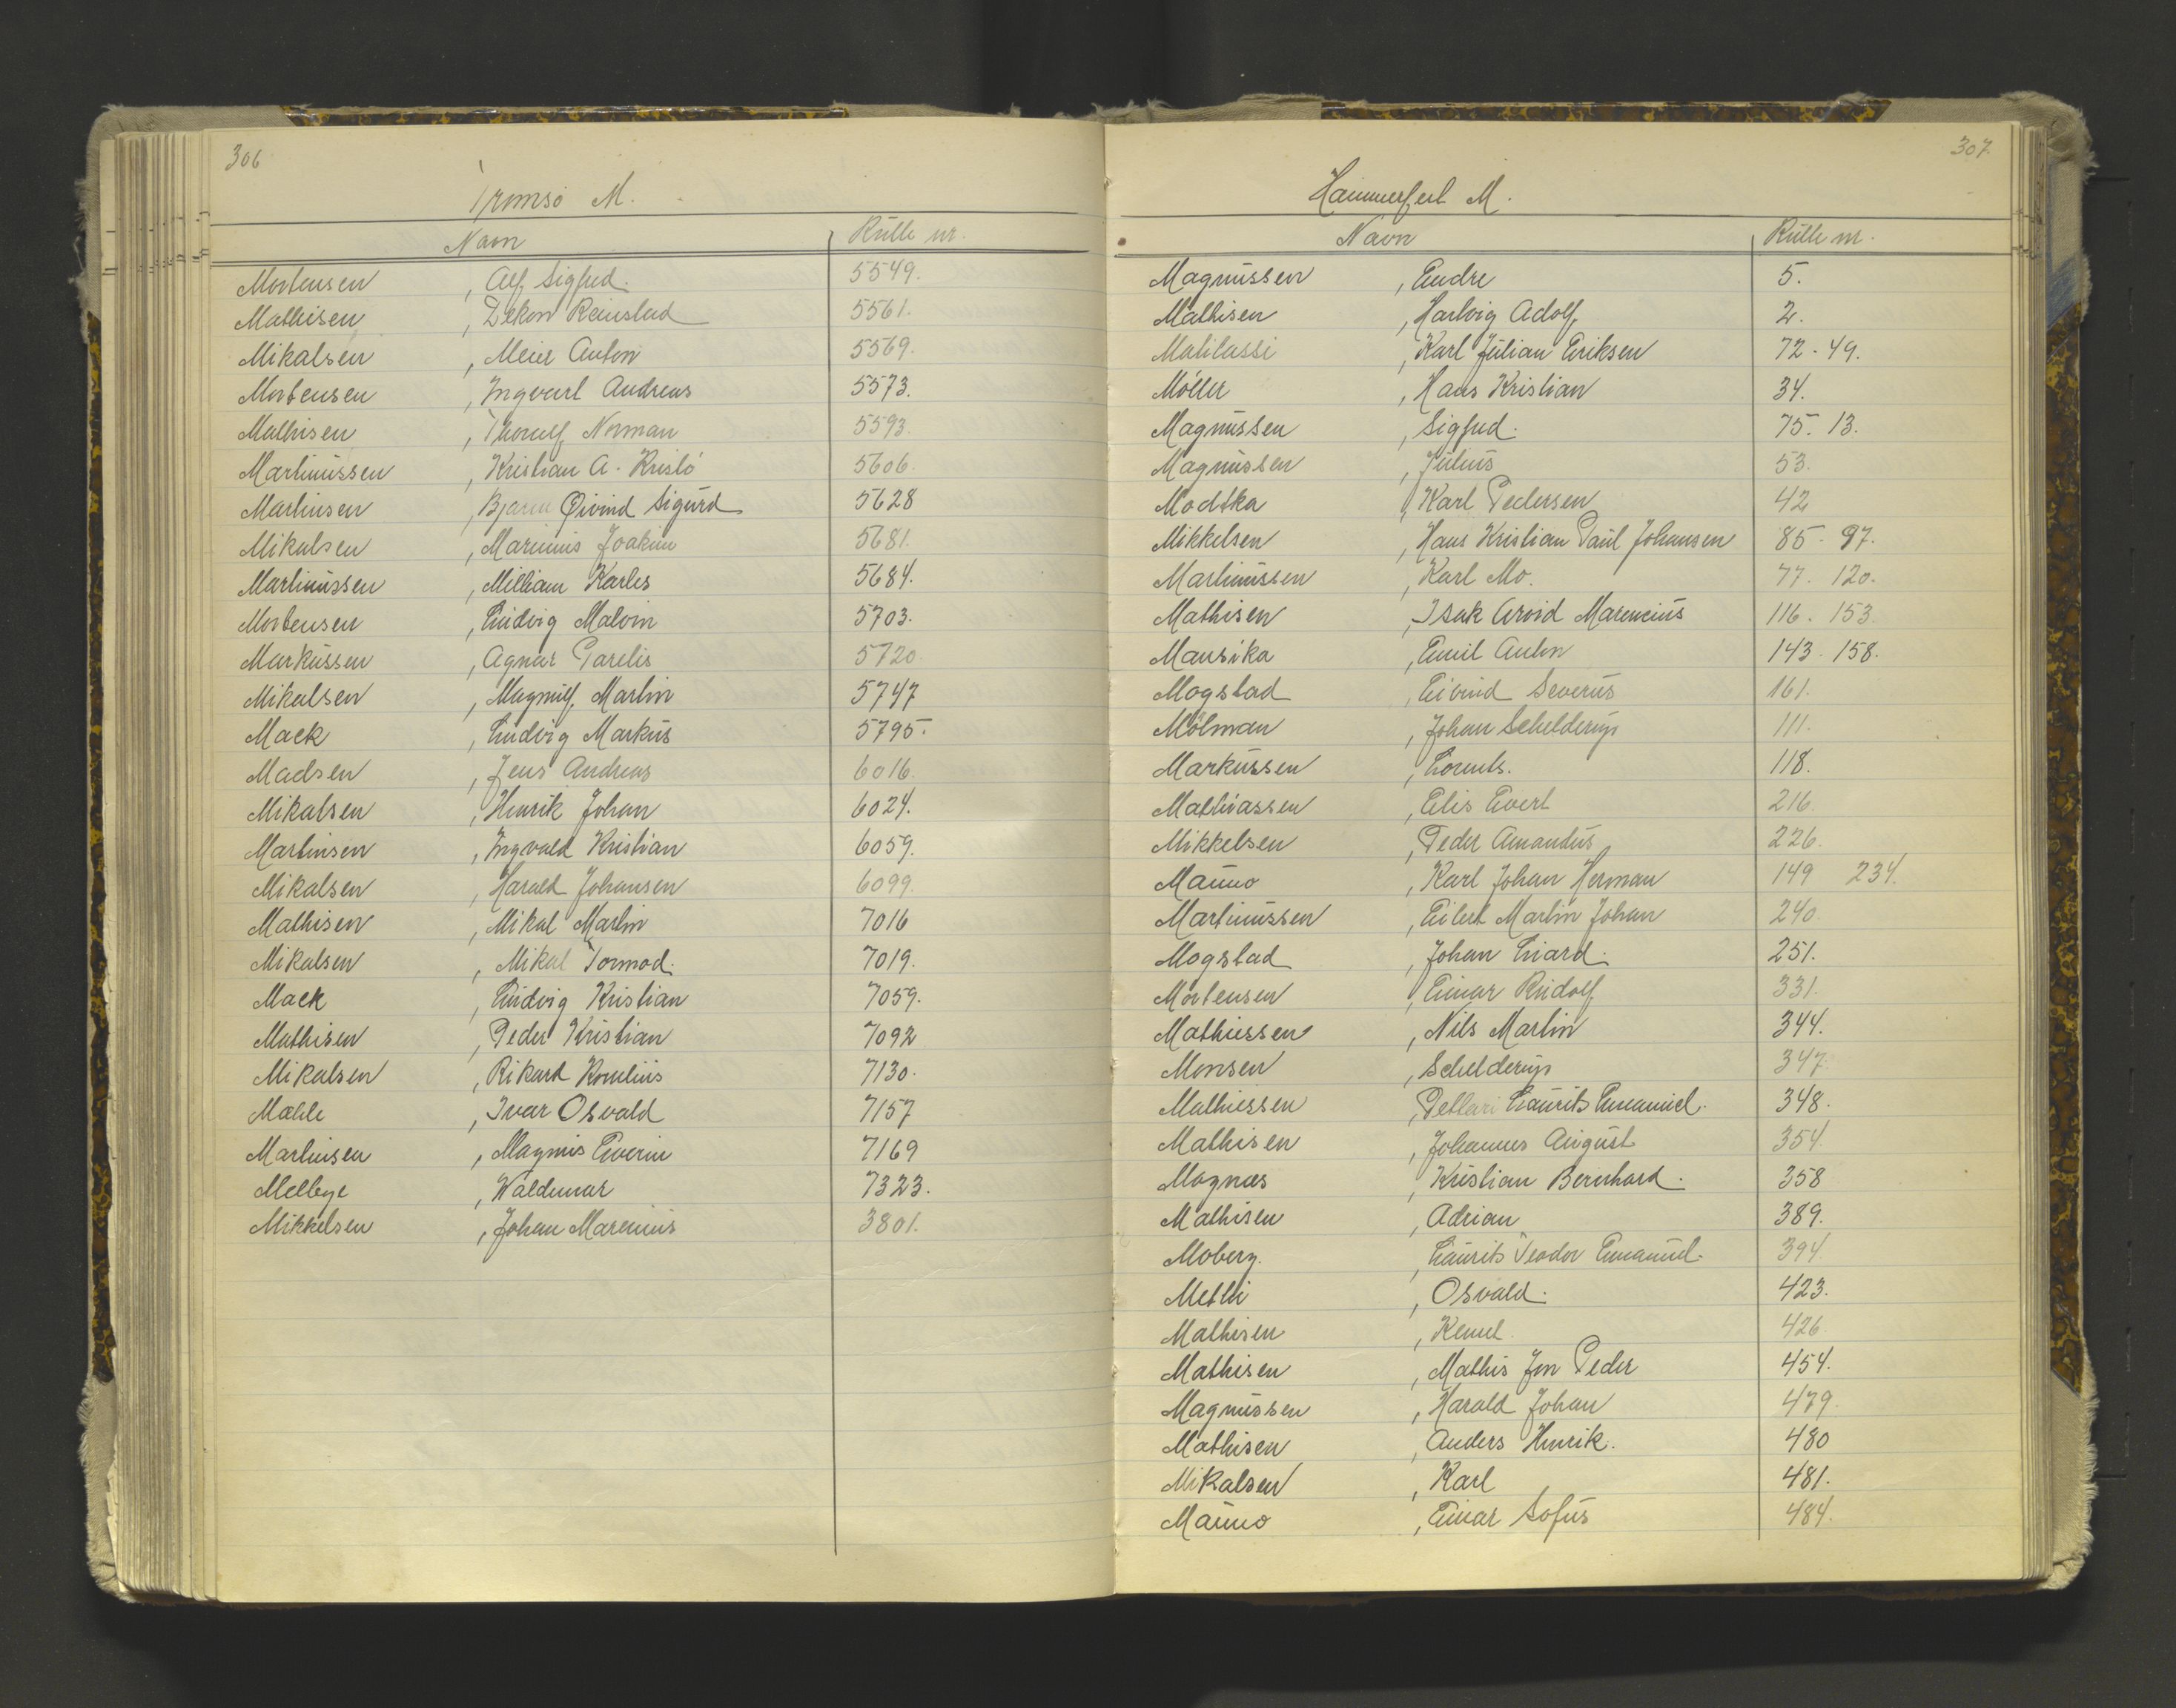 306
Tromsø M.
Navn Rulle nr.
Mortensen , Alf Sigfred. 5549.
Mathisen , Reinslad 5561.
Mikalsen , Meier Anton 5569.
Mortensen , Ingvart Andreas 5573.
Mathisen , Thorulf Norman 5593.
Martinussen , Kristian A. Kristò 5606.
Martinsen , Bjarne Øivind Sigurd 5628
Mikalsen , Marinius Joakim 5681.
Martinussen , William Karles 5684.
Mortensen , Ludvig Malvin 5703.
Markussen , Agnar Parelis 5720
Mikalsen , Magnulf Martin 5747
Mack , Ludvig Markus 5795.
Madsen , Jens Andreas 6016.
Mikalsen , Henrik Johan 6024.
Martinsen , Ingvald Kristian 6059.
Mikalsen , Harald Johansen 6099.
Mathisen , Mikal Martin 7016
Mikalsen , Mikal Tormod. 7019.
Mack , Ludvig Kristian 7059.
Mathisen , Peder Kristian 7092
Mikalsen , Rikard Kornelius 7130.
Mæhle , Ivar Osvald 7157
Martinsen , Magnus Everin 7169
Mellbye , Waldemar 7323.
Mikkelsen , Johan Marenius 3801.
307.
Hammerfest M.
Navn Rulle nr.
Magnussen , Endre 5.
Mathisen , Hartvig Adolf 2.
Matilassi , Karl Julian Eriksen 72 - 49.
Möller , Hans Kristian 34.
Magnussen , Sigfred. 75. 13.
Magnussen , Julius 53.
Modtka , Karl Pedersen 42
Mikkelsen , Hans Kristian Paul Johansen 85 - 97.
Martinussen , Karl Mo. 77. 120.
Mathisen , Isak Arvid Marencius 116. 153.
Mansika , Emil Anton 143. 158.
Mogstad , Eivind Severus 161.
Mölman , Johan Schelderup 111.
Markussen , Lorents. 118.
Mathiassen , Elis Evert 216.
Mikkelsen , Peder Amandus 226.
Mauno , Karl Johan Herman 149 234.
Martinussen , Eilert Martin Johan 240
Mogstad , Johan Liard. 251.
Mortensen , Einar Rudolf 331.
Mathiessen , Nils Martin 344.
Monsen , Schelderup 347.
Mathiessen , Petlari Laurits Emanuel. 348.
Mathisen , Johannes August 354.
Magnæs , Kristian Bernhard. 358
Mathisen , Adrian 389.
Moberg. , Laurits Teodor Emanuel. 394.
Metti , Osvald. 423.
Mathisen , Kemel 426.
Mathisen , Mathis Jon Peder 454.
Magnussen , Harald Johan 479.
Mathisen , Anders Henrik. 480
Mikalsen , Karl 481.
Mauno , Einar Sofus 484.